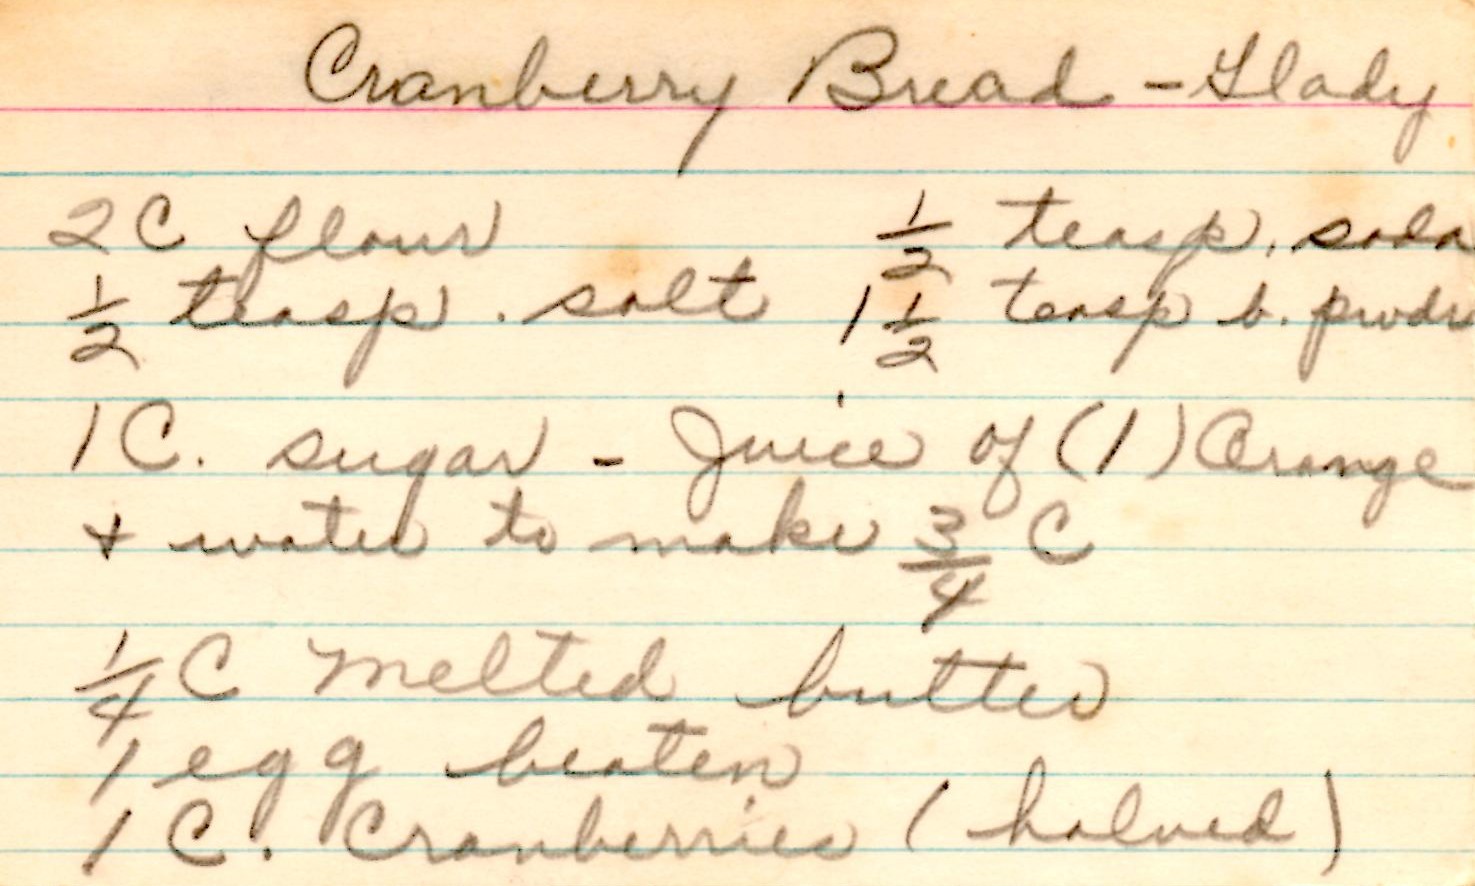 Cranberry Bread - Glady
2C flour ½ teasp. soda
½ teasp. salt 1½ teasp b. pwdr
1 C. sugar - Juice of (1) Orange
+ water to make ¾ C
¼ C Melted butter
1 egg beaten
1 C. Cranberries (halved)